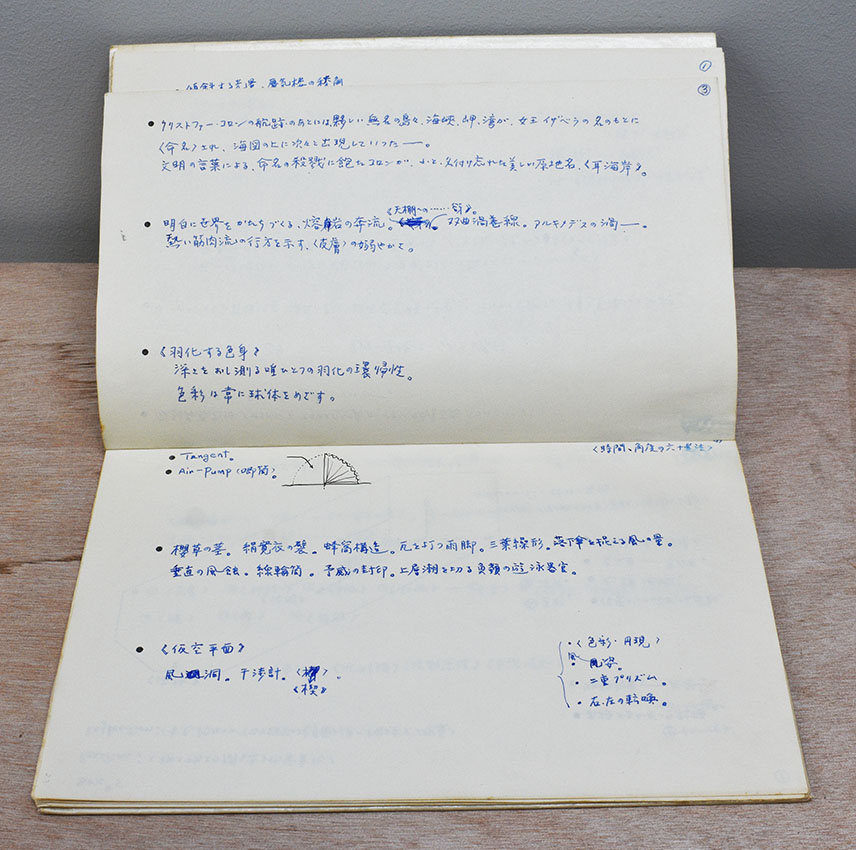 ①
・傾斜する 蜃気楼の
③
● クリストファー・コロンの航跡のあとには、夥しい無名の島々、海峡、岬、湾が、女王イザベラの名のもとに
〈命名〉され、海図の上に次々と出現していった――。
文明の言葉による、命名の殺戮に飽きたコロンが、ふと、名付け忘れた美しい原地名、〈耳海岸〉。
《天棚への……
● 明白に世界をかたちづくる、熔岩の奔流。双曲渦巻線。アルキメデスの渦――。
熱い筋肉流の行方を示す、〈皮層〉の嫋やかさ。
● 《羽化する色身》
深さをおし測る唯ひとつの羽化の環帰性。
色彩は常に球体をめざす。
● Tangent。
● Air-Pump (喞筒)。
〈時間、角度の六十進法〉
● 櫻草の茎。絹寛衣の襞。蜂窩構造。瓦を打つ雨脚。三葉線形。落下傘を捉える風の量。
垂直の風蝕。線輪筒。予感の封印。上層潮を切る魚類の遊泳器官。
● 《仮空平面》
風洞。干渉計。
《楔》
・〈色彩・円現〉
風
・姿。
・二重プリズム。
・右、左の転喚。